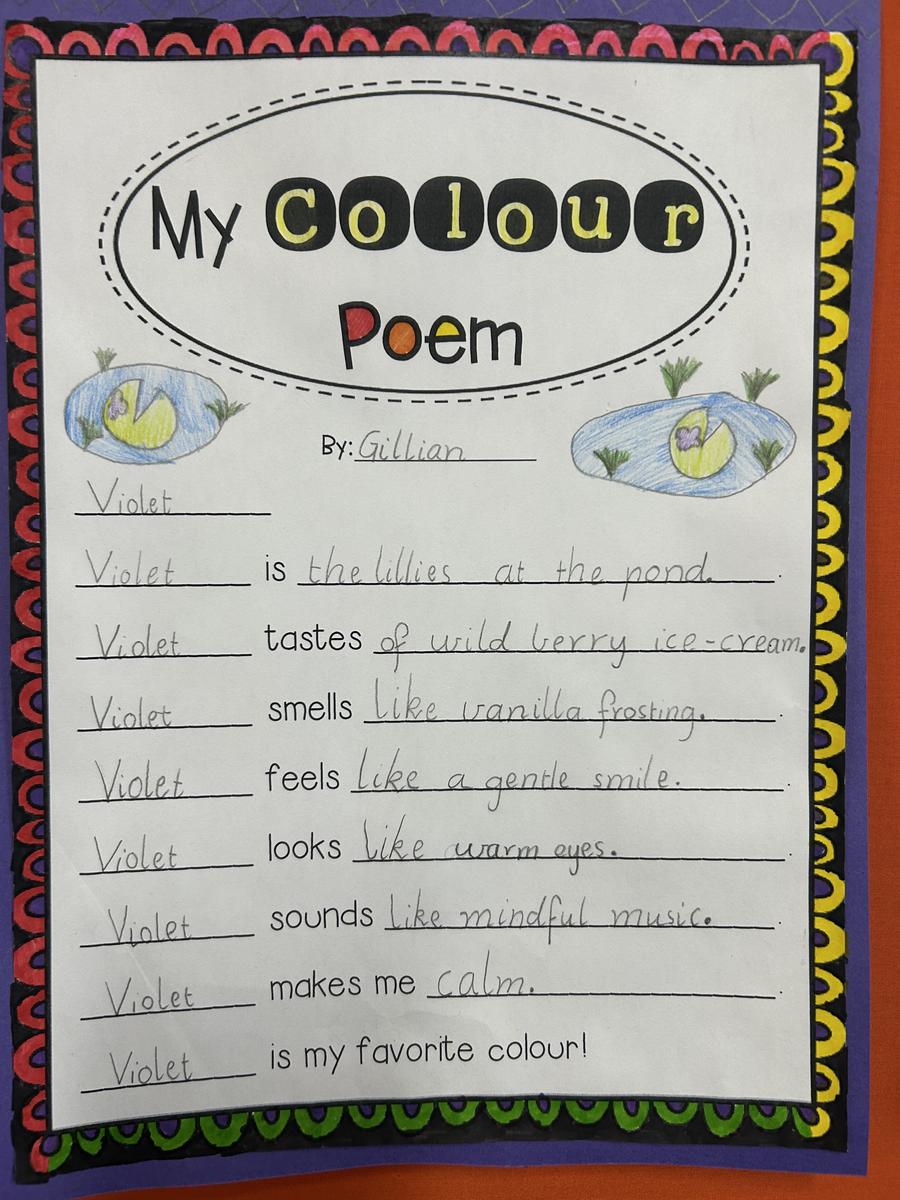 My Colour
Poem
By: Gillian
Violet
Violet is the lillies at the pond.
Violet tastes of wild berry ice-cream.
Violet smells like vanilla frosting.
Violet feels like a gentle smile.
Violet looks like warm eyes.
Violet sounds like mindful music.
Violet makes me calm.
Violet is my favorite colour!